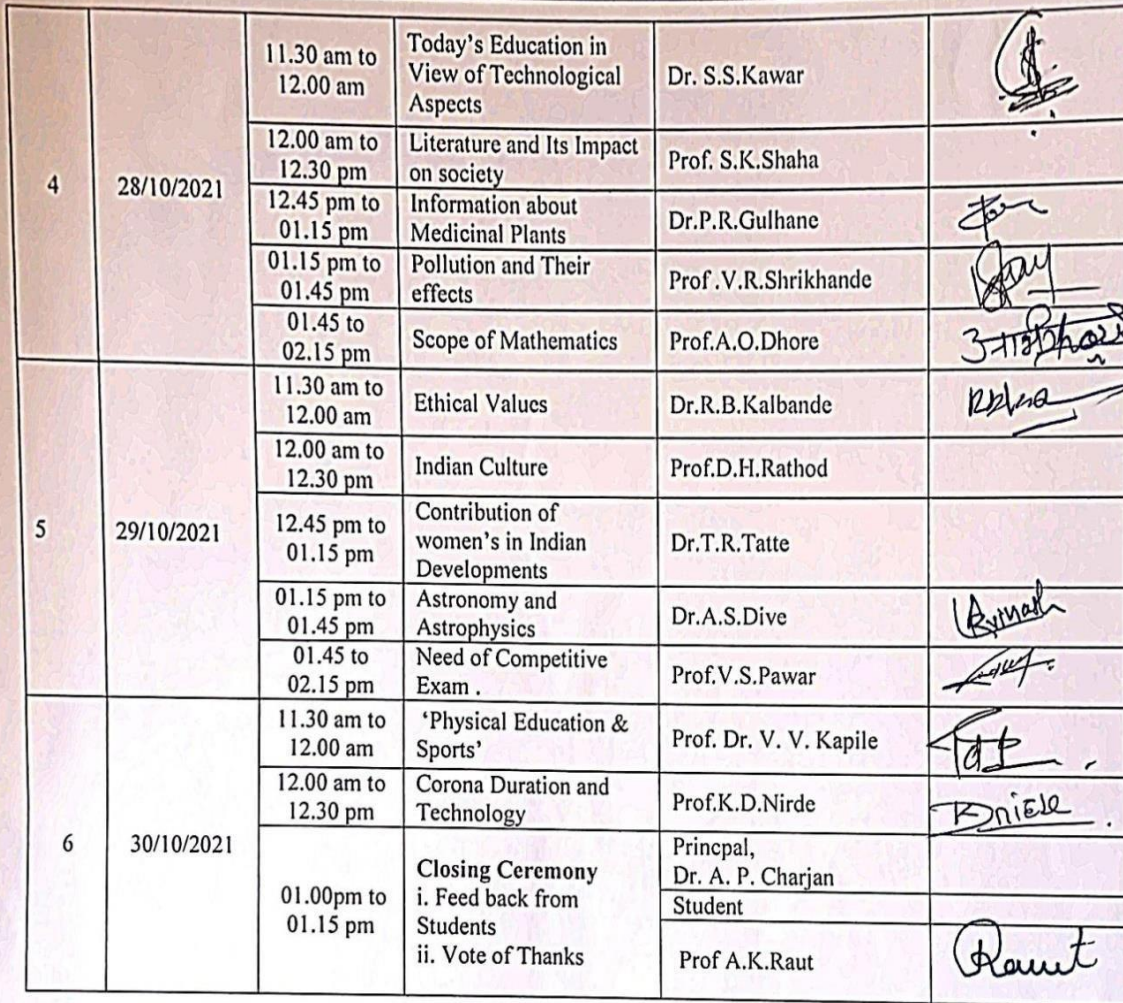 11.30 am to
12.00 am
Today's Education in
View of Technological
Aspects
Dr. S.S.Kawar
4
28/10/2021
12.00 am to
12.30 pm
Literature and Its Impact
on society
Prof. S.K.Shaha
12.45 pm to
01.15 pm
Information about
Medicinal Plants
Dr.P.R.Gulhane
01.15 pm to
01.45 pm
Pollution and Their
effects
Prof .V.R.Shrikhande
01.45 to
02.15 pm
Scope of Mathematics
Prof.A.O.Dhore
5
29/10/2021
11.30 am to
12.00 am
Ethical Values
Dr.R.B.Kalbande
12.00 am to
12.30 pm
Indian Culture
Prof.D.H.Rathod
12.45 pm to
01.15 pm
Contribution of
women's in Indian
Developments
Dr.T.R.Tatte
01.15 pm to
01.45 pm
Astronomy and
Astrophysics
Dr.A.S.Dive
01.45 to
02.15 pm
Need of Competitive
Exam .
Prof.V.S.Pawar
6
30/10/2021
11.30 am to
12.00 am
‘Physical Education &
Sports’
Prof. Dr. V. V. Kapile
12.00 am to
12.30 pm
Corona Duration and
Technology
Prof.K.D.Nirde
01.00pm to
01.15 pm
Closing Ceremony
i. Feed back from
Students
ii. Vote of Thanks
Princpal,
Dr. A. P. Charjan
Student
Prof A.K.Raut
Raut